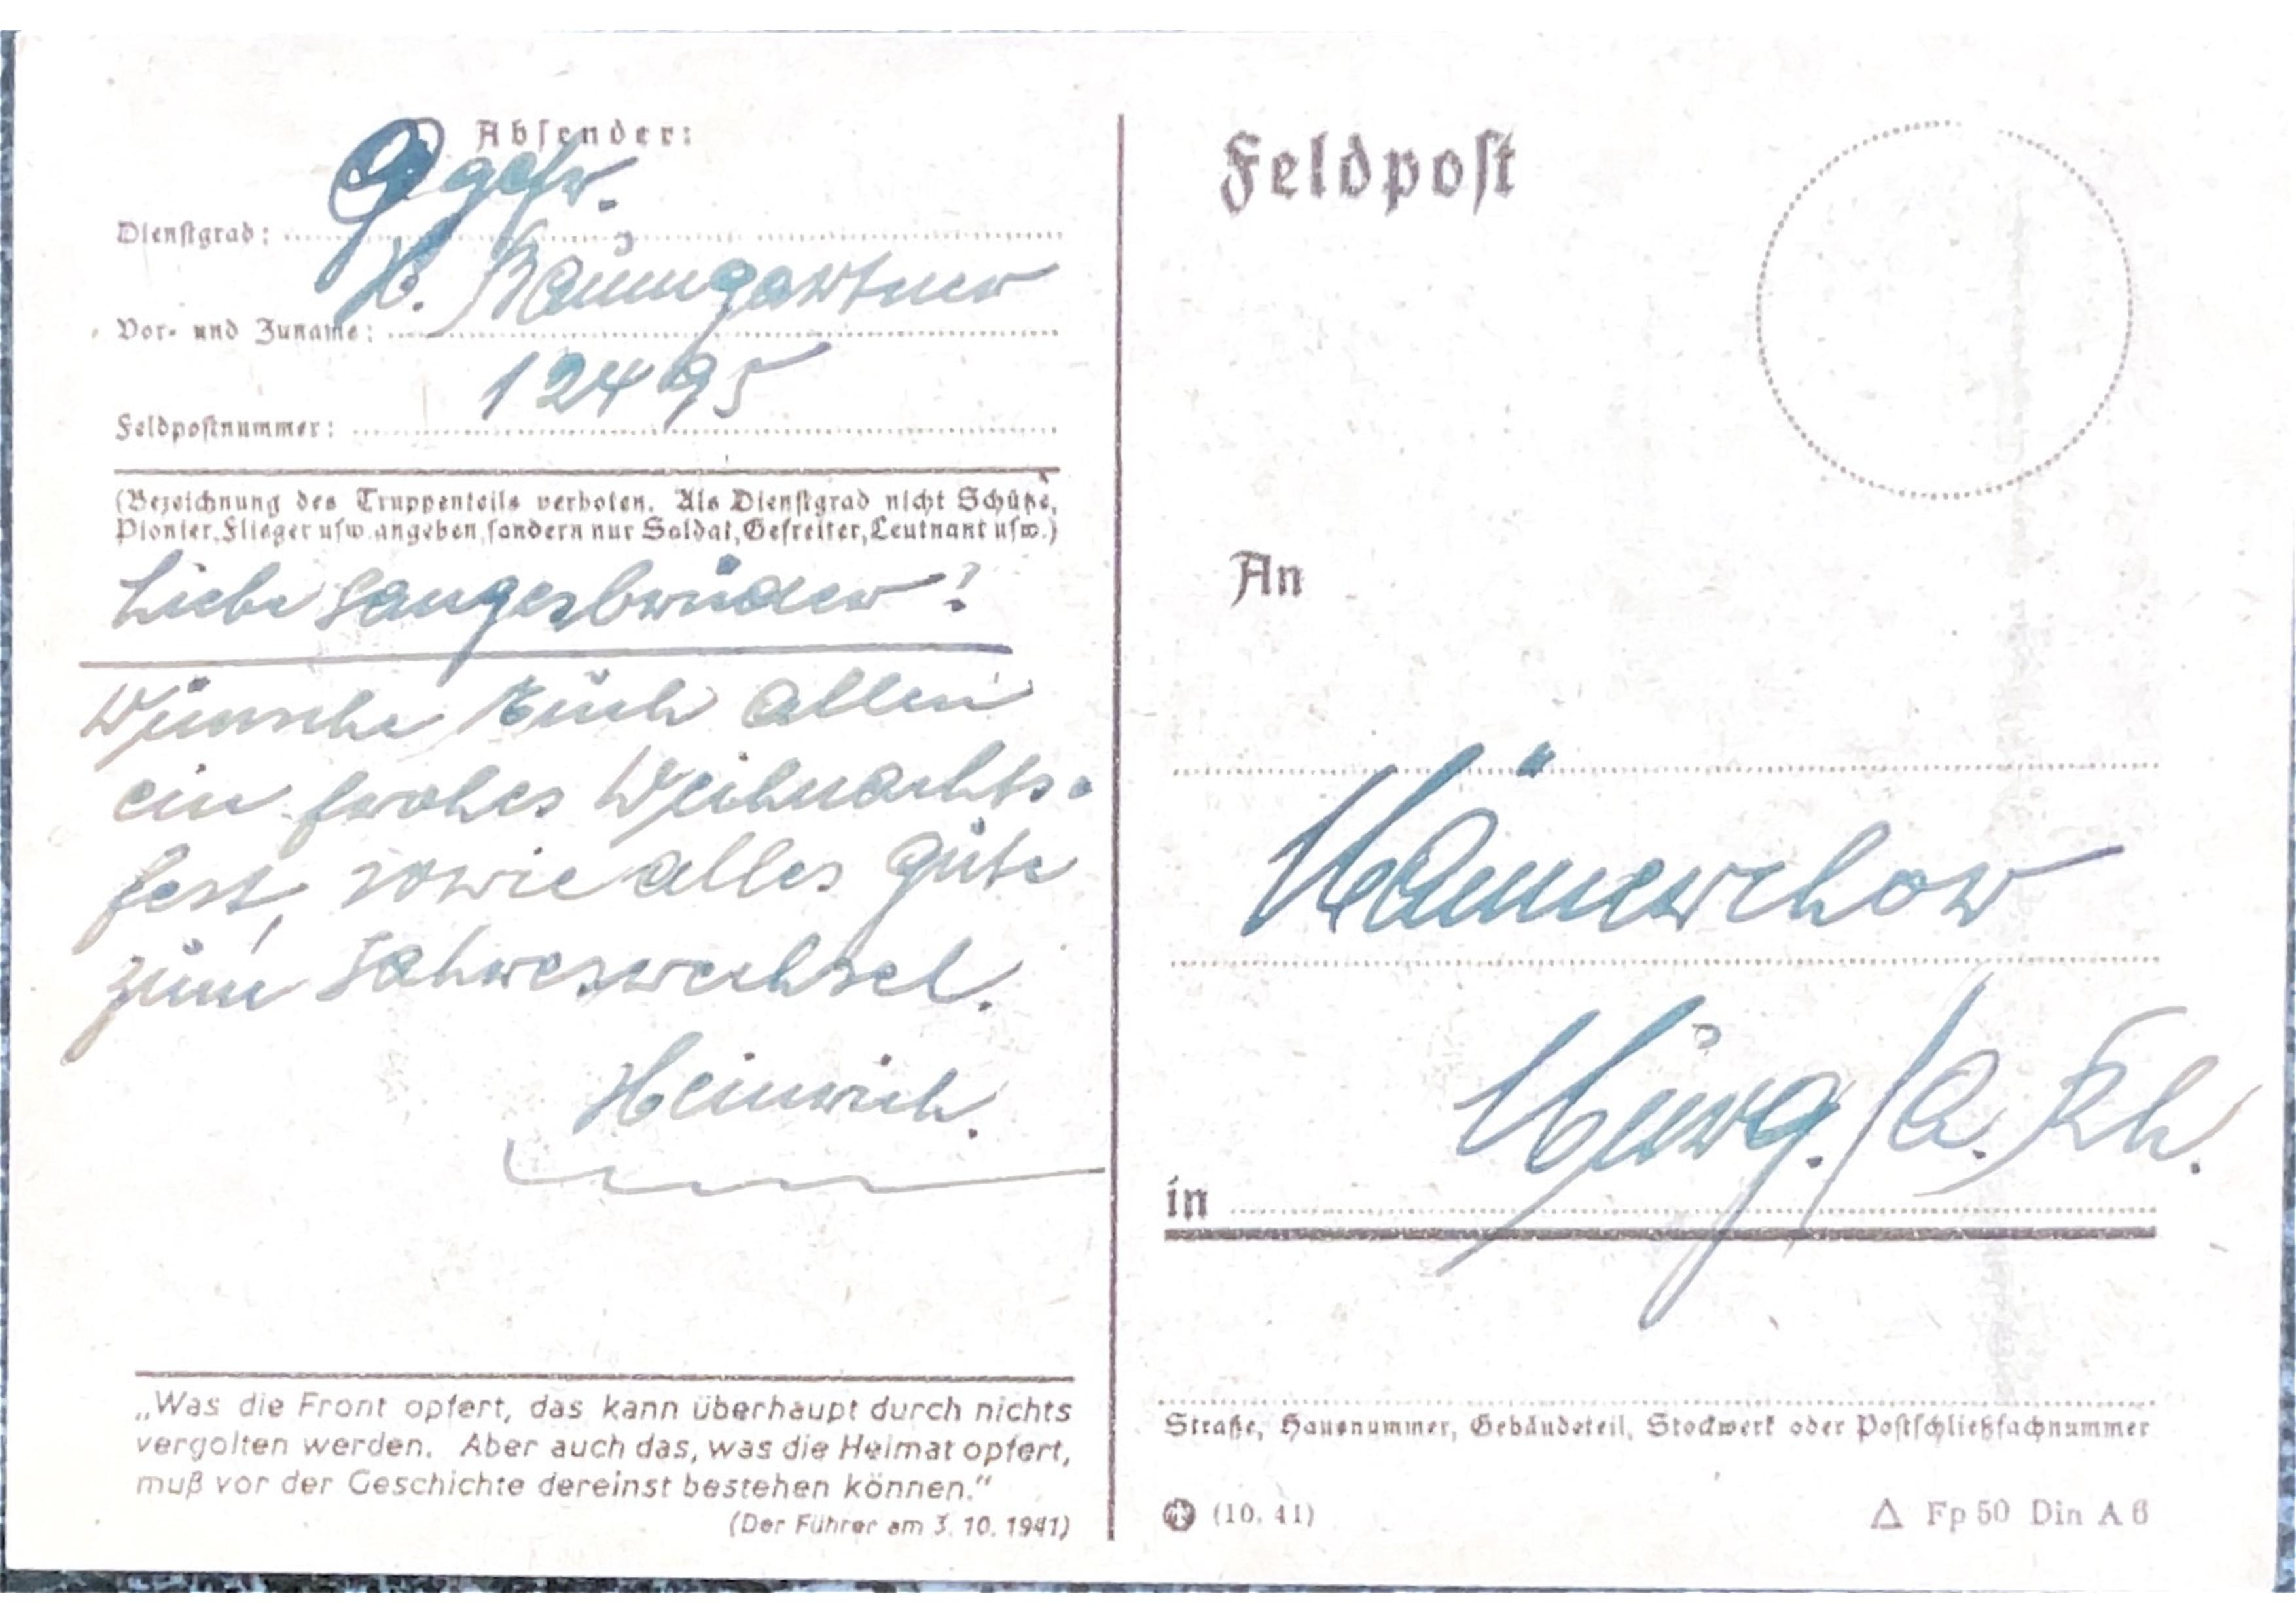 Absender:
Ogefr.
Dienstgrad:
H. Baumgartner
Vor- und Zuname:
12495
Feldpostnummer:
(Bezeichnung des Truppenteils verboten. Als Dienstgrad nicht Schütze,
Pionier, Flieger usw. angeben, sondern nur Soldat, Gefreiter, Leutnant usw.)
Liebe Sangesbrüder!
Wünsche Euch allen
ein frohes Weihnachts-
fest, sowie alles gute
zum Jahreswechsel.
Heinrich.
„Was die Front opfert, das kann überhaupt durch nichts
vergolten werden. Aber auch das, was die Heimat opfert,
muß vor der Geschichte dereinst bestehen können.“
(Der Führer am 3. 10. 1941)
Feldpost
An
Männerchor
in Murg. / a. Rh.
Straße, Hausnummer, Gebäudeteil, Stockwerk oder Postschließfachnummer
(10. 41)
△ Fp 50 Din A 6